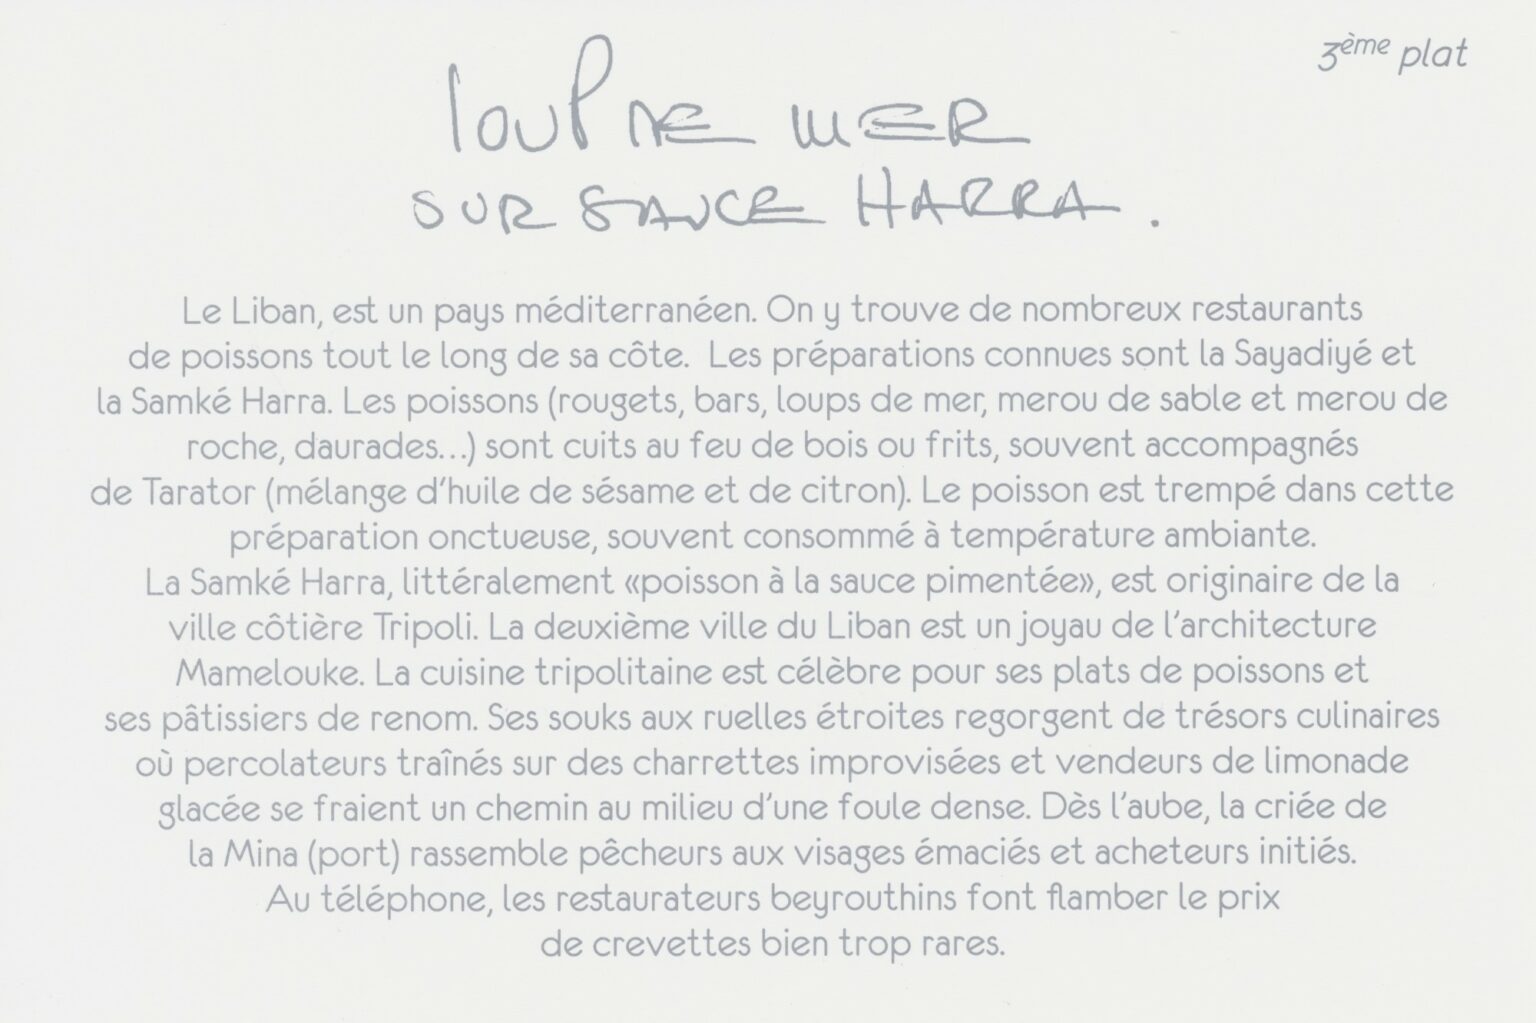 3ème plat
loup de mer
sur sauce harra.
Le Liban, est un pays méditerranéen. On y trouve de nombreux restaurants
de poissons tout le long de sa côte. Les préparations connues sont la Sayadiyé et
la Samké Harra. Les poissons (rougets, bars, loups de mer, merou de sable et merou de
roche, daurades...) sont cuits au feu de bois ou frits, souvent accompagnés
de Tarator (mélange d'huile de sésame et de citron). Le poisson est trempé dans cette
préparation onctueuse, souvent consommé à température ambiante.
La Samké Harra, littéralement «poisson à la sauce pimentée», est originaire de la
ville côtière Tripoli. La deuxième ville du Liban est un joyau de l'architecture
Mamelouke. La cuisine tripolitaine est célèbre pour ses plats de poissons et
ses pâtissiers de renom. Ses souks aux ruelles étroites regorgent de trésors culinaires
où percolateurs traînés sur des charrettes improvisées et vendeurs de limonade
glacée se fraient un chemin au milieu d'une foule dense. Dès l'aube, la criée de
la Mina (port) rassemble pêcheurs aux visages émaciés et acheteurs initiés.
Au téléphone, les restaurateurs beyrouthins font flamber le prix
de crevettes bien trop rares.